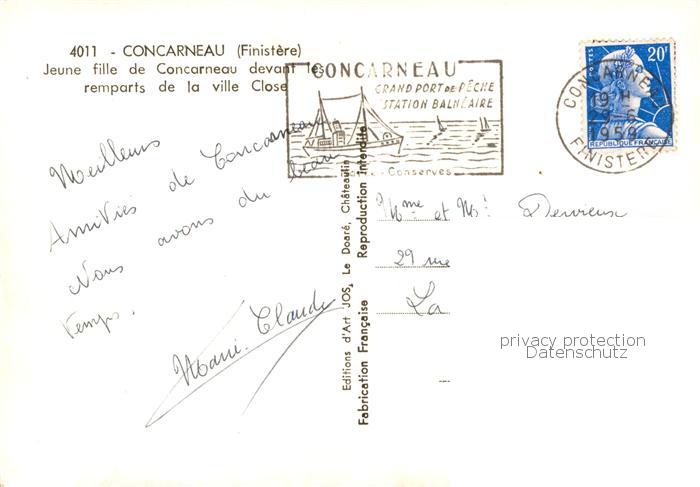 4011 - CONCARNEAU (Finistère)
Jeune fille de Concarneau devant les
remparts de la ville Close
CONCARNEAU
GRAND PORT DE PÊCHE
STATION BALNÉAIRE
Conserves
POSTES
20F
REPUBLIQUE FRANÇAISE
CONCARNEAU
19 H
1959
FINISTERE
Meilleurs
Amitiés de Concarneau
Nous avons du beau
temps.
Marie-Claude
Editions d'Art JOS, Le Doaré, Châteaulin
Fabrication Française Reproduction Interdite
Mme et Mr Dervieux
29 rue
La
privacy protection
Datenschutz